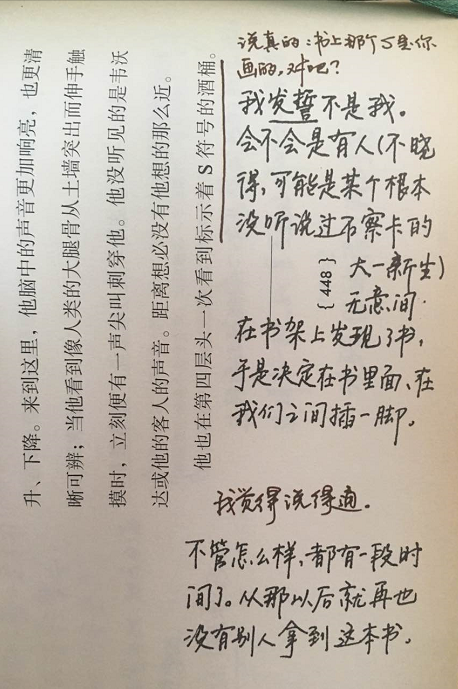 升、下降。来到这里，他脑中的声音更加响亮，也更清
晰可辨；当他看到像人类的大腿骨从土墙突出而伸手触
摸时，立刻便有一声尖叫刺穿他。他没听见的是韦沃
达或他的客人的声音。距离想必没有他想的那么近。
他也在第四层头一次看到标示着 S 符号的酒桶。
{ 448 }
说真的：书上那个S是你
画的，对吧？
我发誓不是我。
会不会是有人（不晓
得，可能是某个根本
没听说过石察卡的
大一新生）
无意间
在书架上发现了书，
于是决定在书里面、在
我们之间插一脚。
我觉得说得通。
不管怎么样，都有一段时
间了。从那以后就再也
没有别人拿到这本书。